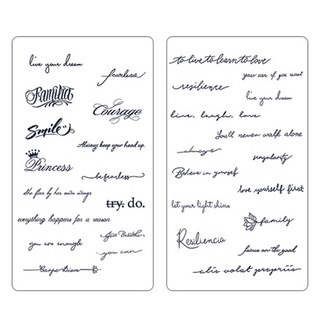 live your dream
fearless
Familia
Courage
Smile
Always keep your head up.
Princess
be fearless
she flies by her own wings
try. do.
everything happens for a reason
give thanks
you are enough
you can
Carpe diem
to live to learn to love
you can if you want
resilience
live your dream
live, laugh, love
You'll never walk alone
always
singularity
Believe in yourself
love yourself first
let your light shine
family
Resiliencia
focus on the good
alis volat propriis